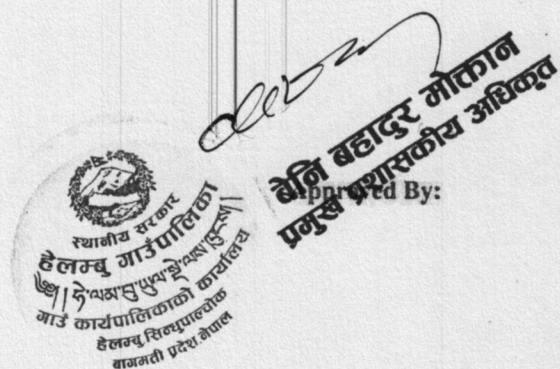 बेनि बहादुर मोक्तान
प्रमुख प्रशासकीय अधिकृत
Approved By:
स्थानीय सरकार
हेलम्बु गाउँपालिका
गाउँ कार्यपालिकाको कार्यालय
हेलम्बु, सिन्धुपाल्चोक
बागमती प्रदेश, नेपाल